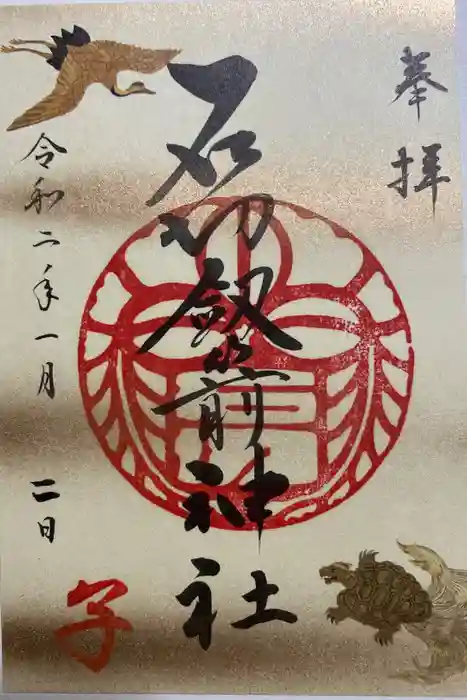 奉拝
石切劔箭神社
令和二年一月二日
子